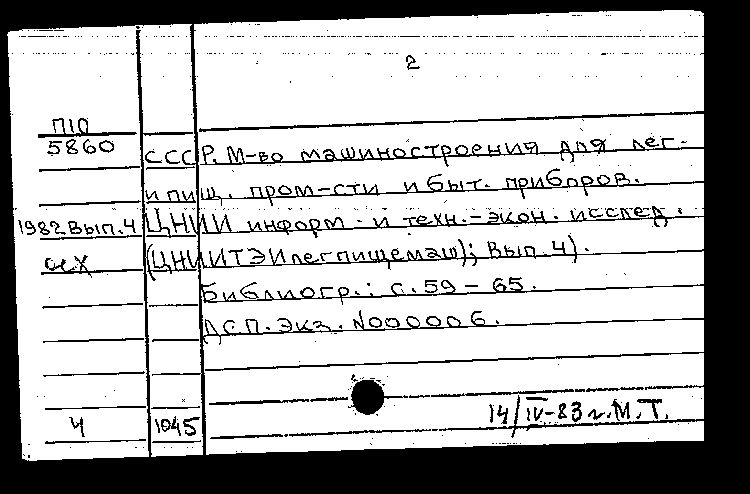 2
П10
5860
СССР. М-во машиностроения для лег-
и пищ. пром-сти и быт. приборов.
1982 Вып. 4 ЦНИИ информ. и техн.-экон. исслед.
(ЦНИИТЭИлегпищемаш); Вып. 4).
Библиогр.: с. 59 – 65.
ДСП. Экз. N000006.
14/IV-83 г. М. Т.
4 1045